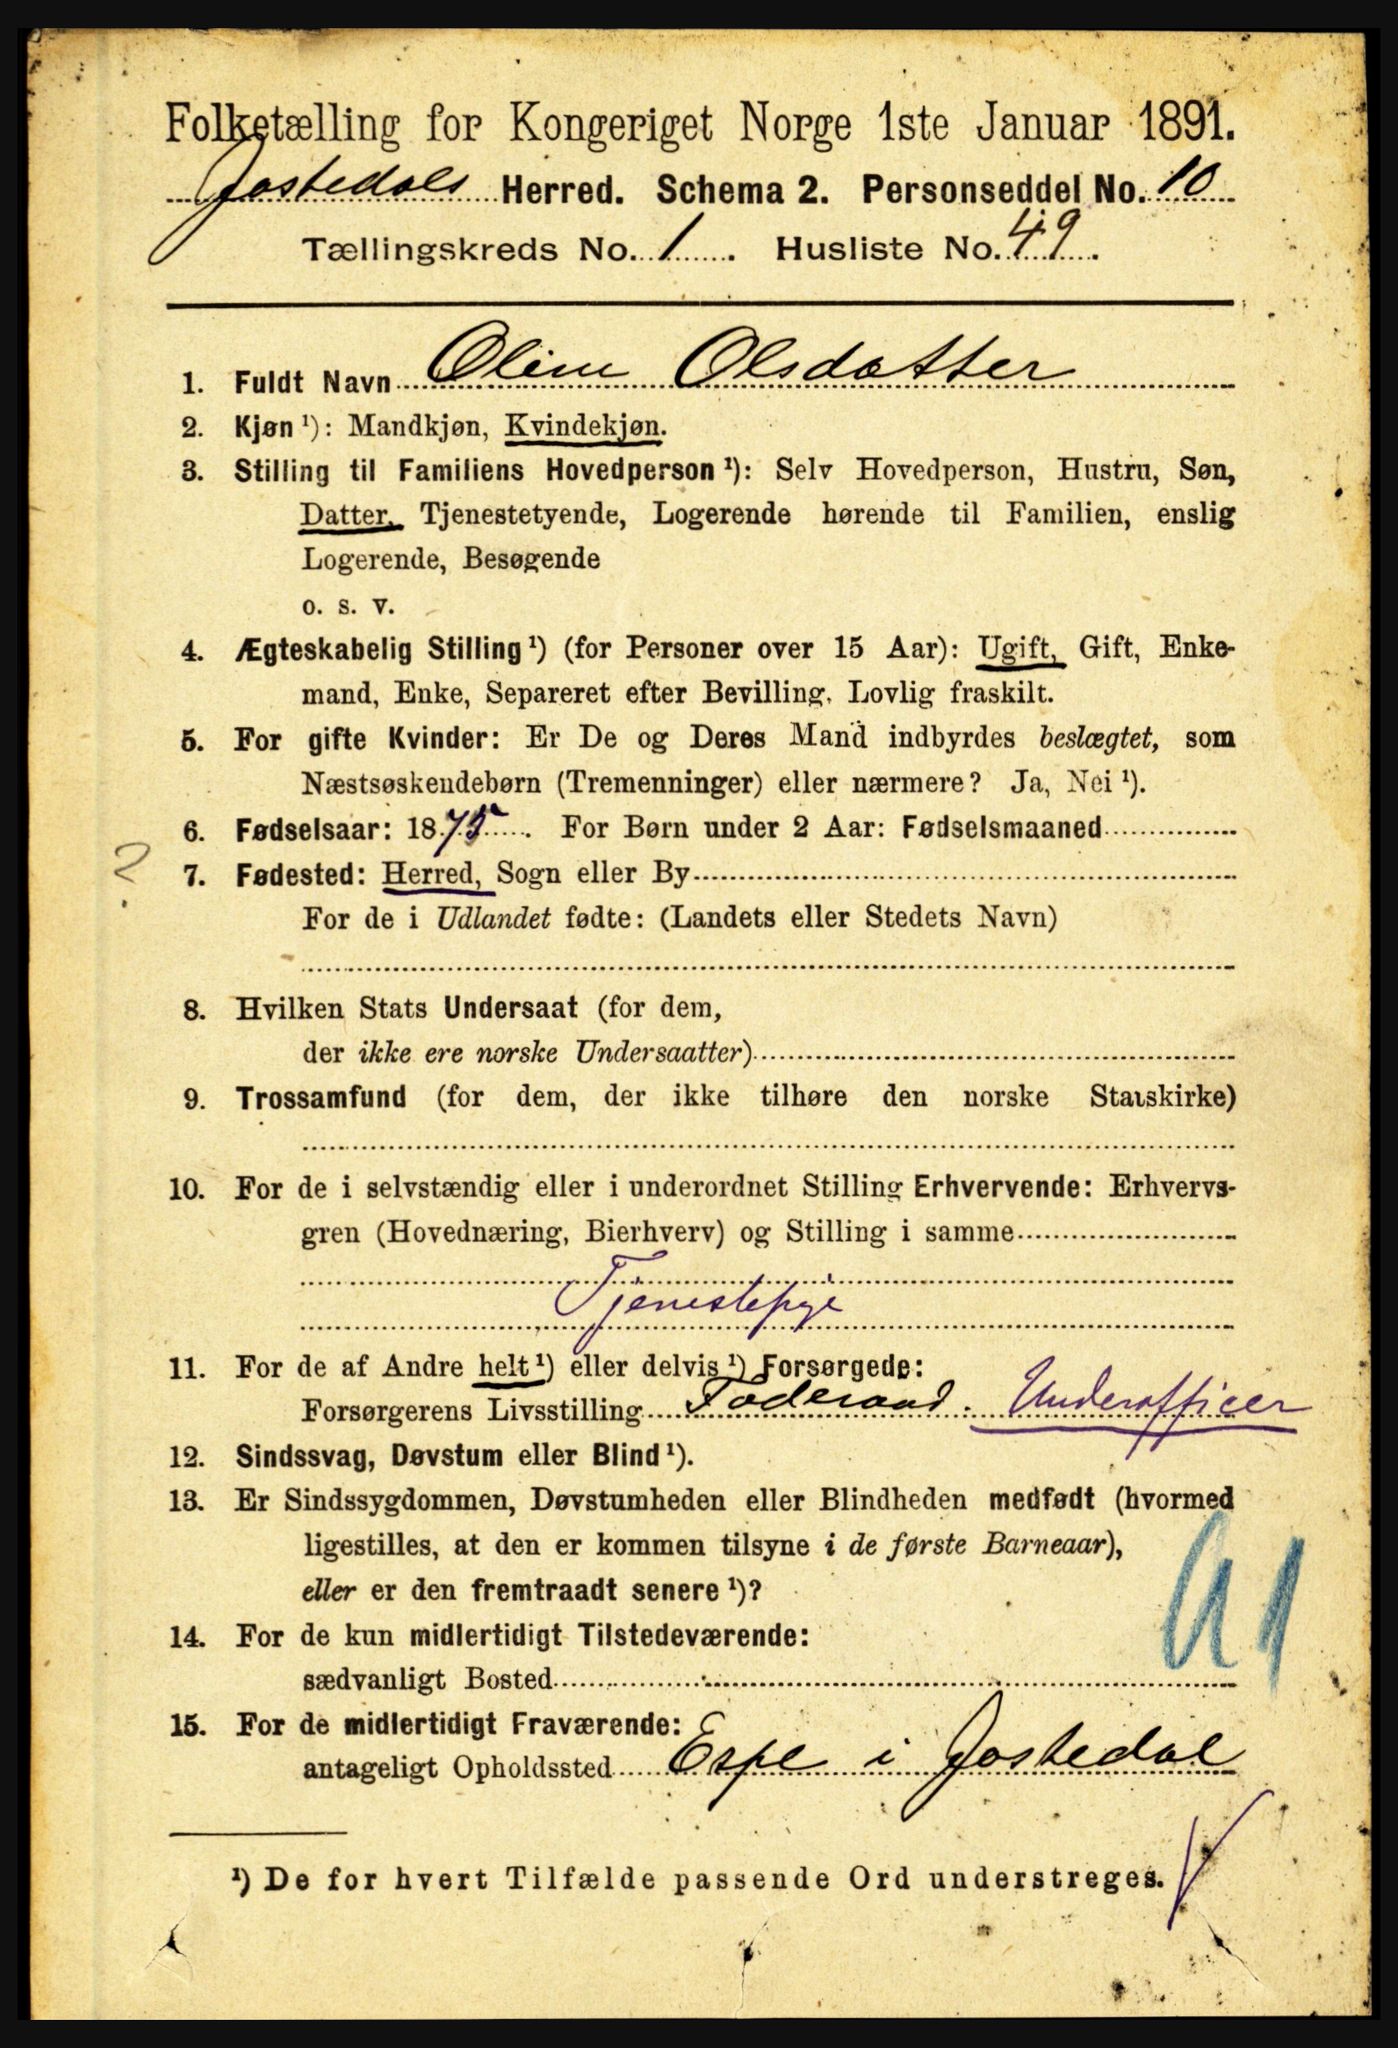 Folketælling for Kongeriget Norge 1ste Januar 1891.
Jostedals Herred. Schema 2. Personseddel No. 10
Tællingskreds No. 1. Husliste No. 49.
1. Fuldt Navn Oline Olsdatter
2. Kjøn ¹): Mandkjøn, Kvindekjøn.
3. Stilling til Familiens Hovedperson ¹): Selv Hovedperson, Hustru, Søn,
Datter, Tjenestetyende, Logerende hørende til Familien, enslig
Logerende, Besøgende
o. s. v.
4. Ægteskabelig Stilling ¹) (for Personer over 15 Aar): Ugift, Gift, Enke-
mand, Enke, Separeret efter Bevilling, Lovlig fraskilt.
5. For gifte Kvinder: Er De og Deres Mand indbyrdes beslægtet, som
Næstsøskendebørn (Tremenninger) eller nærmere? Ja, Nei ¹).
6. Fødselsaar: 1875. For Børn under 2 Aar: Fødselsmaaned
? 7. Fødested: Herred, Sogn eller By
For de i Udlandet fødte: (Landets eller Stedets Navn)
8. Hvilken Stats Undersaat (for dem,
der ikke ere norske Undersaatter)
9. Trossamfund (for dem, der ikke tilhøre den norske Statskirke)
10. For de i selvstændig eller i underordnet Stilling Erhvervende: Erhvervs-
gren (Hovednæring, Bierhverv) og Stilling i samme
Tjenestepige
11. For de af Andre helt ¹) eller delvis ¹) Forsørgede:
Forsørgerens Livsstilling Foderaad. Underofficer
12. Sindssvag, Døvstum eller Blind ¹).
13. Er Sindssygdommen, Døvstumheden eller Blindheden medfødt (hvormed
ligestilles, at den er kommen tilsyne i de første Barneaar),
eller er den fremtraadt senere ¹)?
14. For de kun midlertidigt Tilstedeværende:
sædvanligt Bosted
15. For de midlertidigt Fraværende:
antageligt Opholdssted Espe i Jostedal
¹) De for hvert Tilfælde passende Ord understreges.